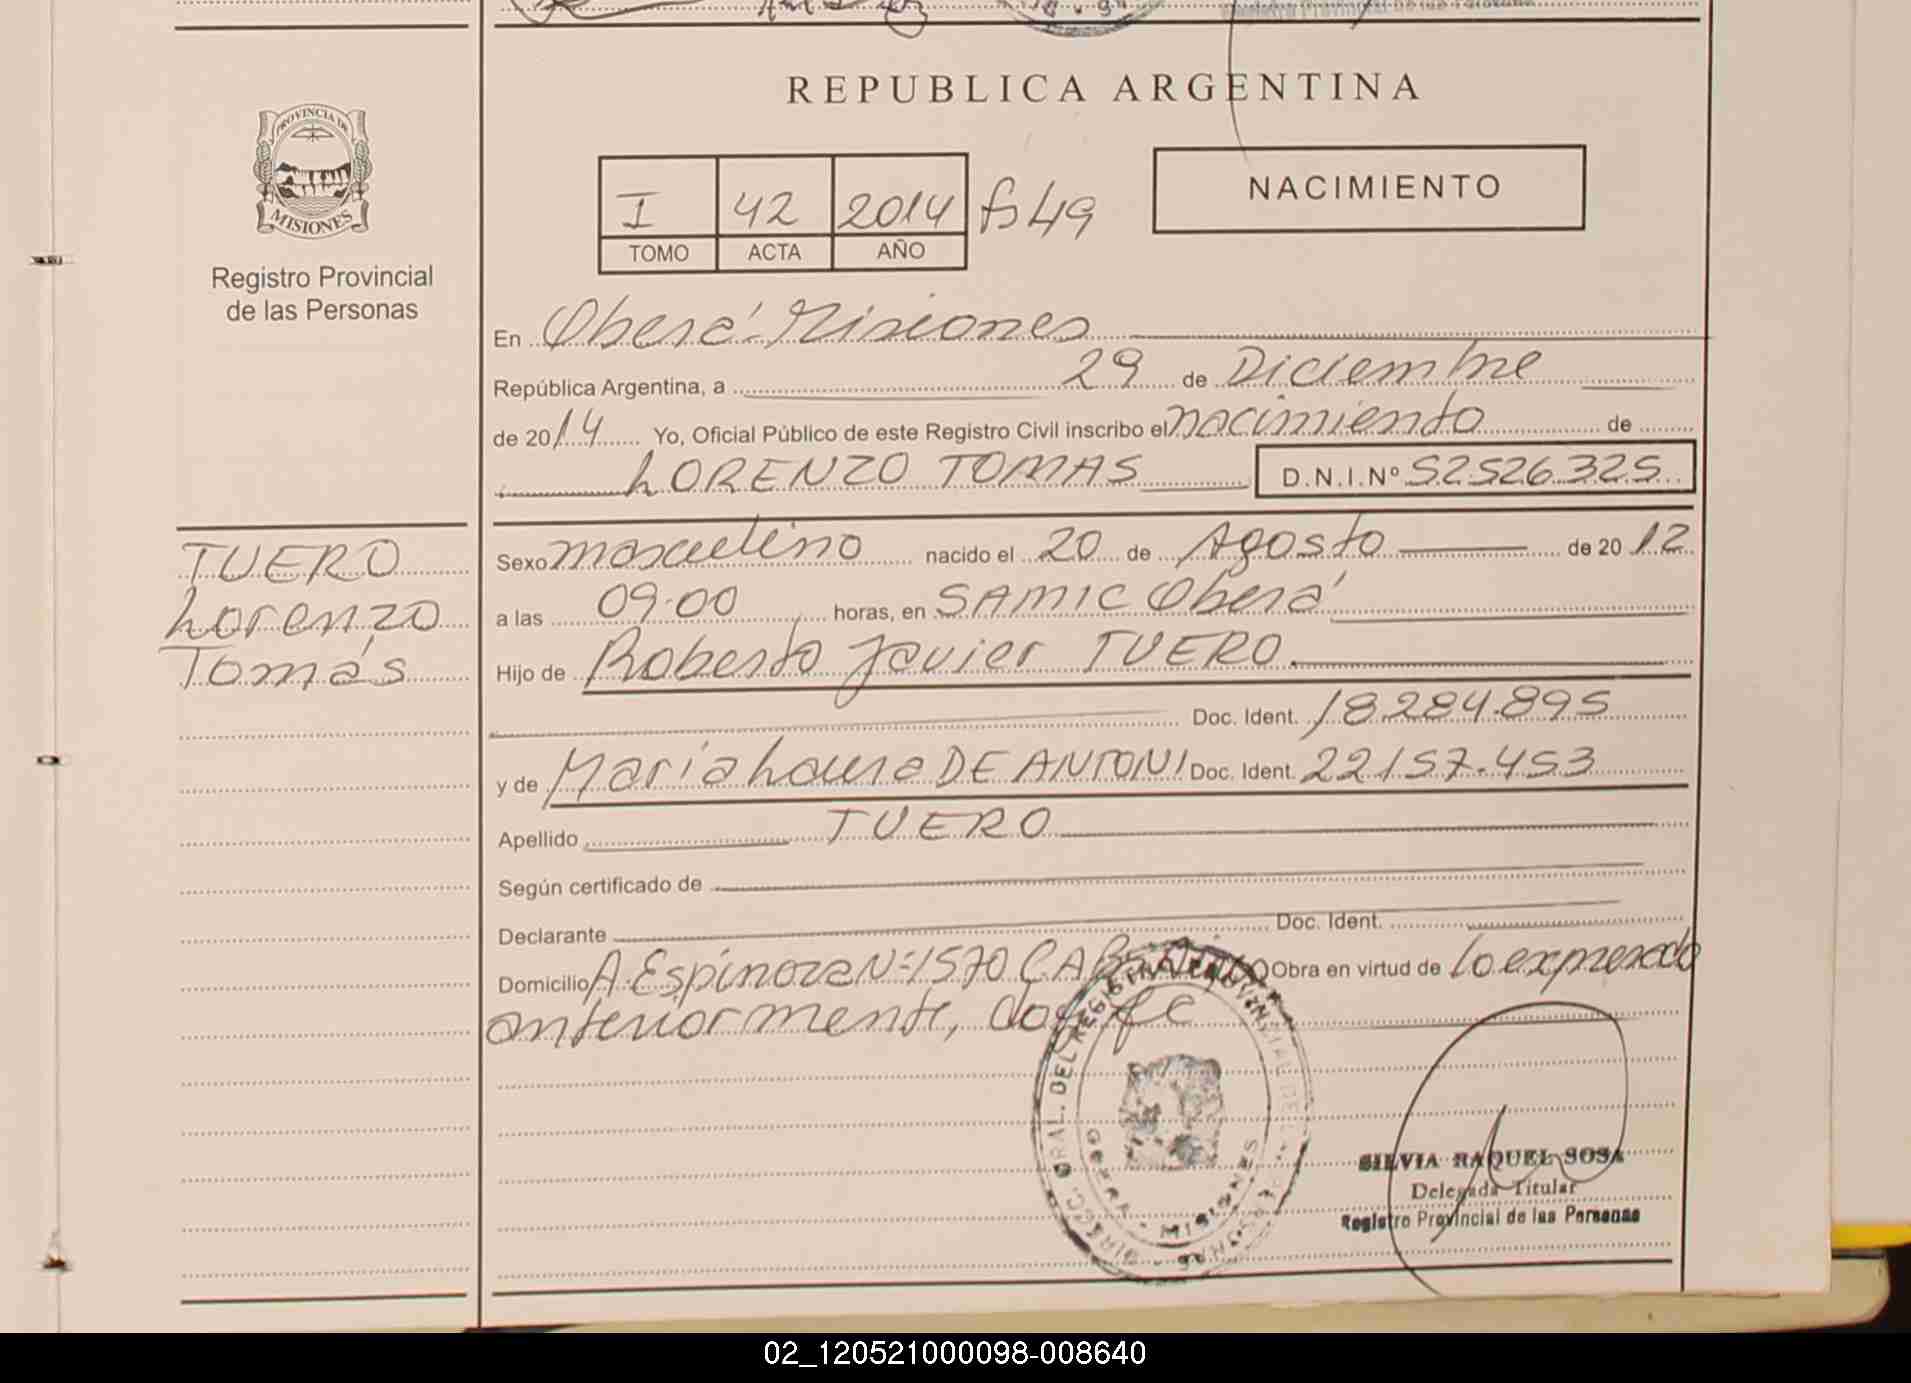 PROVINCIA DE
MISIONES
Registro Provincial
de las Personas
TUERO
Lorenzo
Tomás
REPUBLICA ARGENTINA
I 42 2014 fs 49
TOMO ACTA AÑO
NACIMIENTO
En Oberá - Misiones
República Argentina, a 29 de Diciembre
de 2014 Yo, Oficial Público de este Registro Civil inscribo el nacimiento de
LORENZO TOMAS D.N.I.Nº 52526325
Sexo masculino nacido el 20 de Agosto de 2012
a las 09.00 horas, en SAMIC Oberá
Hijo de Roberto Javier TUERO
Doc. Ident. 18.284.895
y de Maria Laura DE ANTONI Doc. Ident. 22157.453
Apellido TUERO
Según certificado de
Declarante Doc. Ident.
Domicilio A. Espinoza N=1570 C.A.Bs. Obra en virtud de lo expresado
anteriormente, doy fe
SILVIA RAQUEL SOSA
Delegada Titular
Registro Provincial de las Personas
02_120521000098-008640